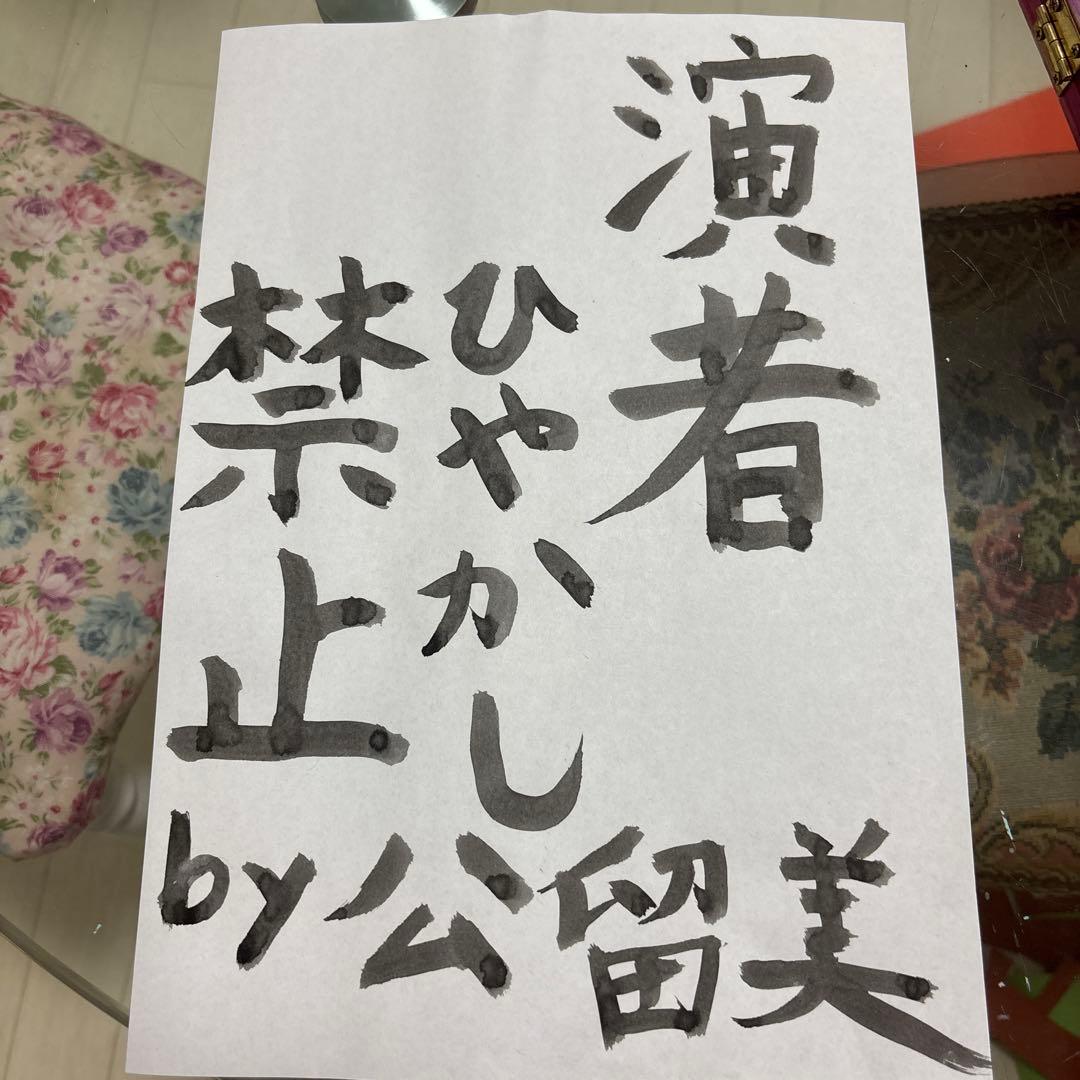 演者
ひやかし
禁止
by公留美